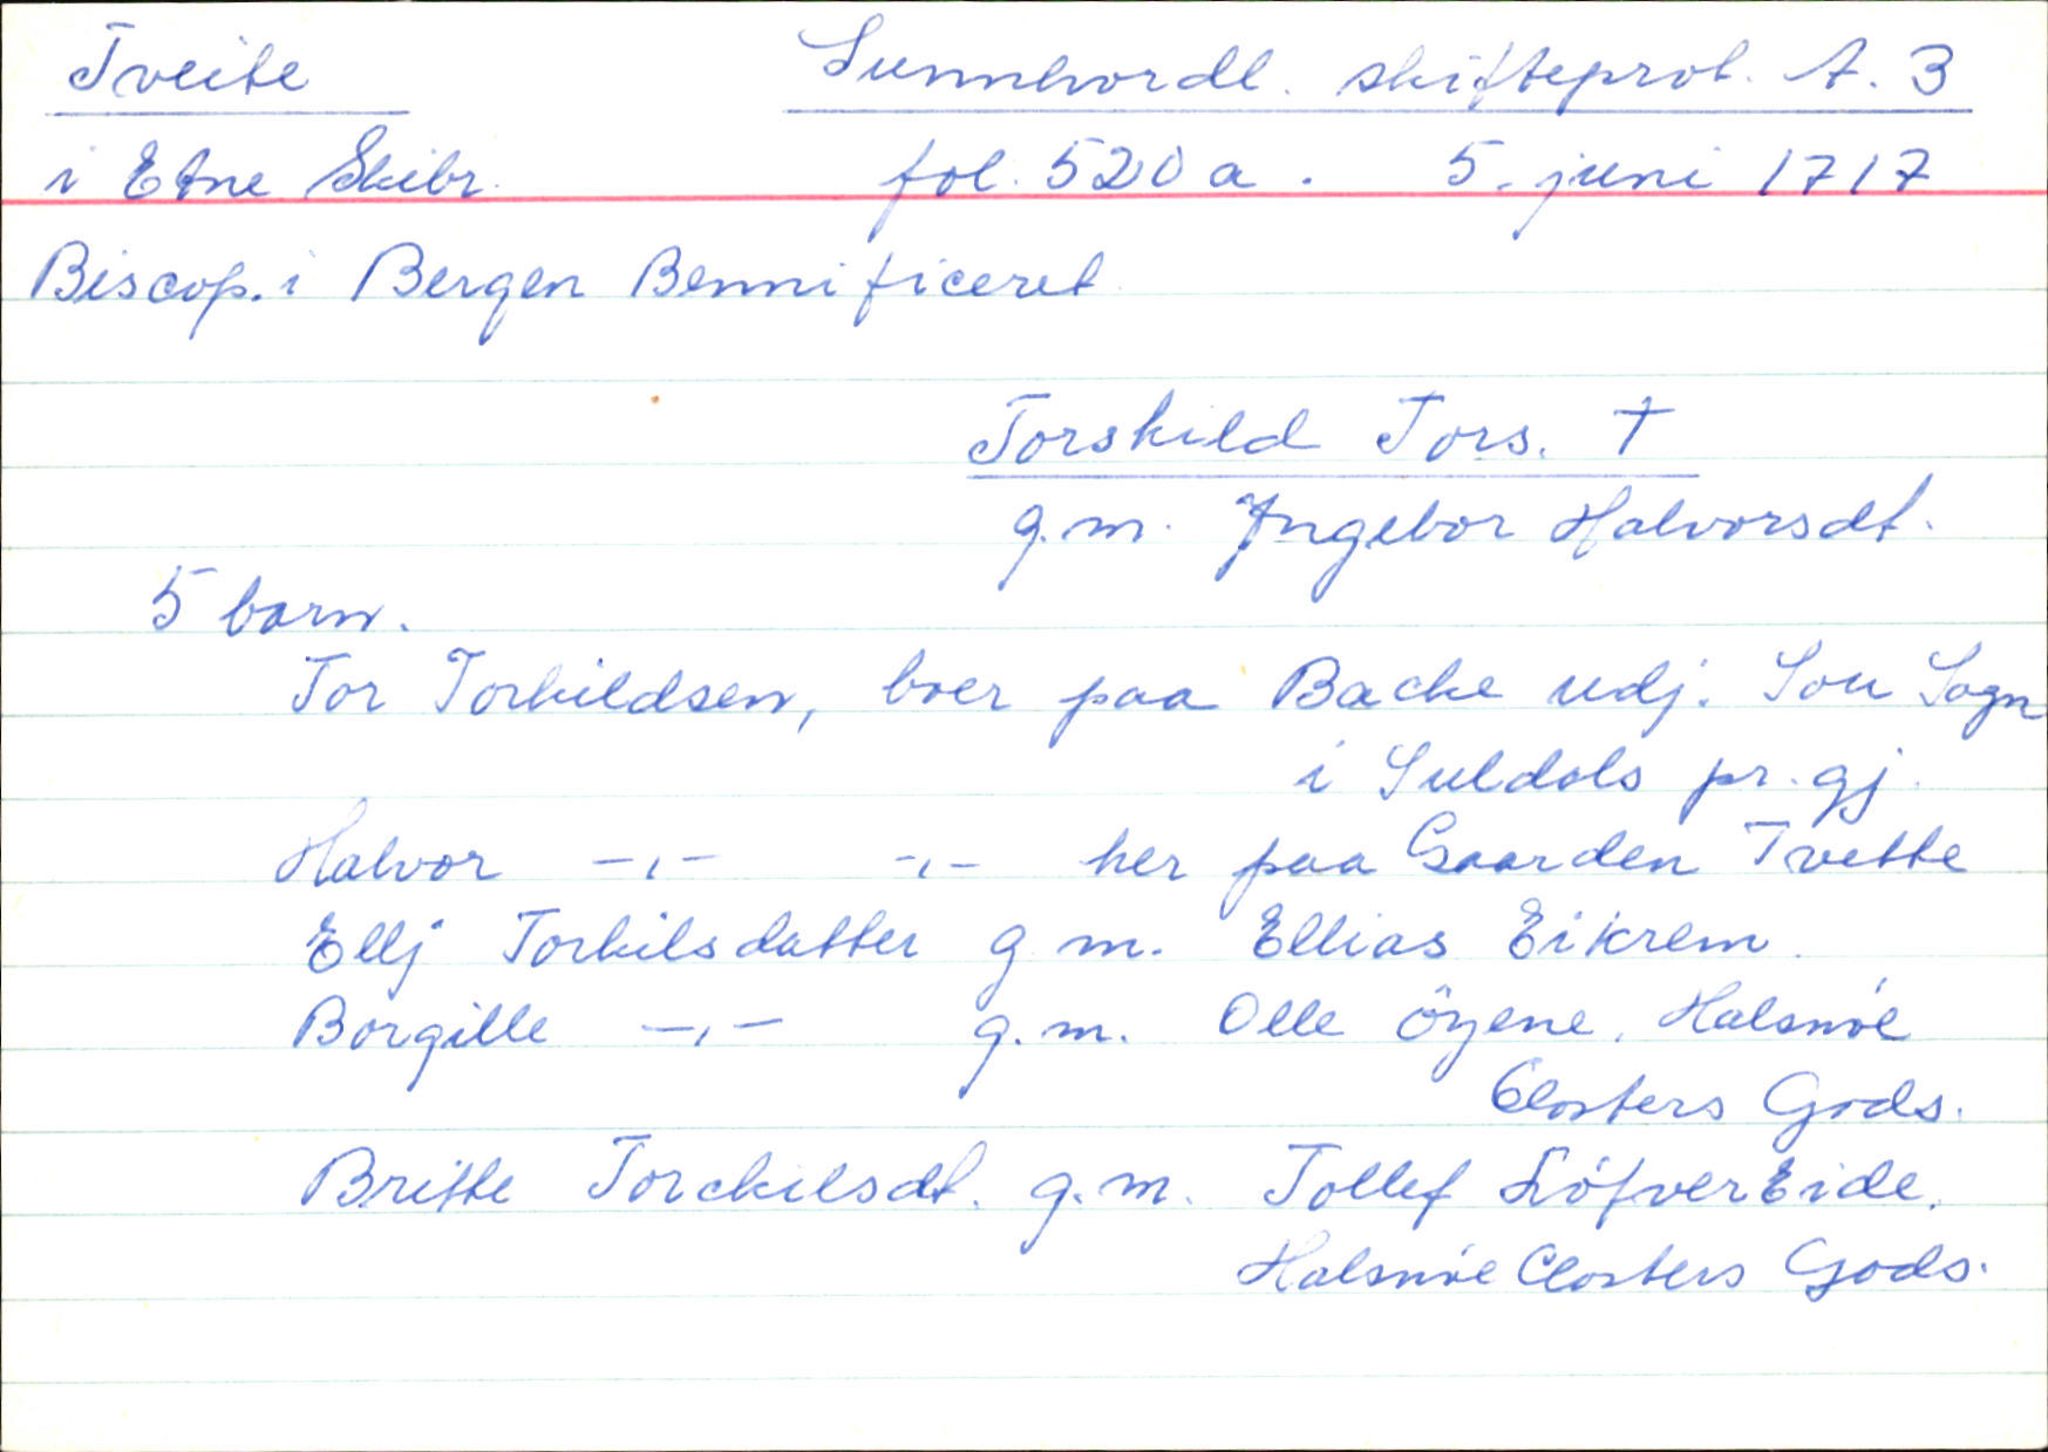 Tveite Sunnhordl. skifteprot. A. 3
i Etne Skibr. fol. 520 a. 5. juni 1717
Biscop. i Bergen Bennificeret
Torskild Tors. †
g.m. Ingebor Halvorsdt.
5 barn.
Tor Torkildsen, boer paa Backe udj. Sou Sogn
i Suldals pr. gj.
Halvor -,- -,- her paa Gaarden Tvette
Ellj Torkilsdatter g m. Ellias Eikrem.
Borgille -,- g.m. Olle Öyene, Halsnöe
Closters Gods.
Britte Torckilsdt. g.m. Tollef Löfver Eide.
Halsnöe Closters Gods.